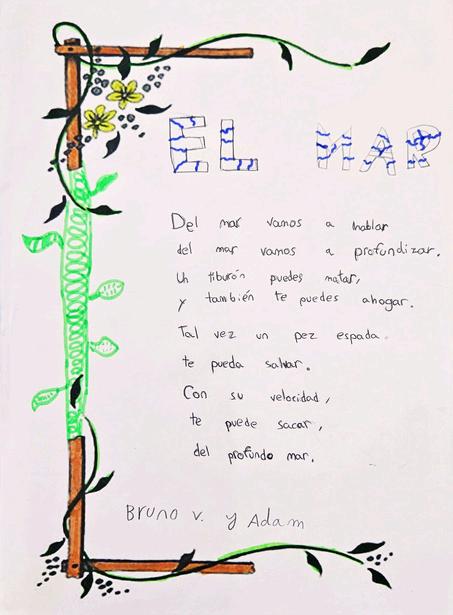 EL MAR
Del mar vamos a hablar
del mar vamos a profundizar.
Un tiburón puedes matar,
y también te puedes ahogar.
Tal vez un pez espada
te pueda salvar.
Con su velocidad,
te puede sacar,
del profundo mar.
Bruno v. y Adam